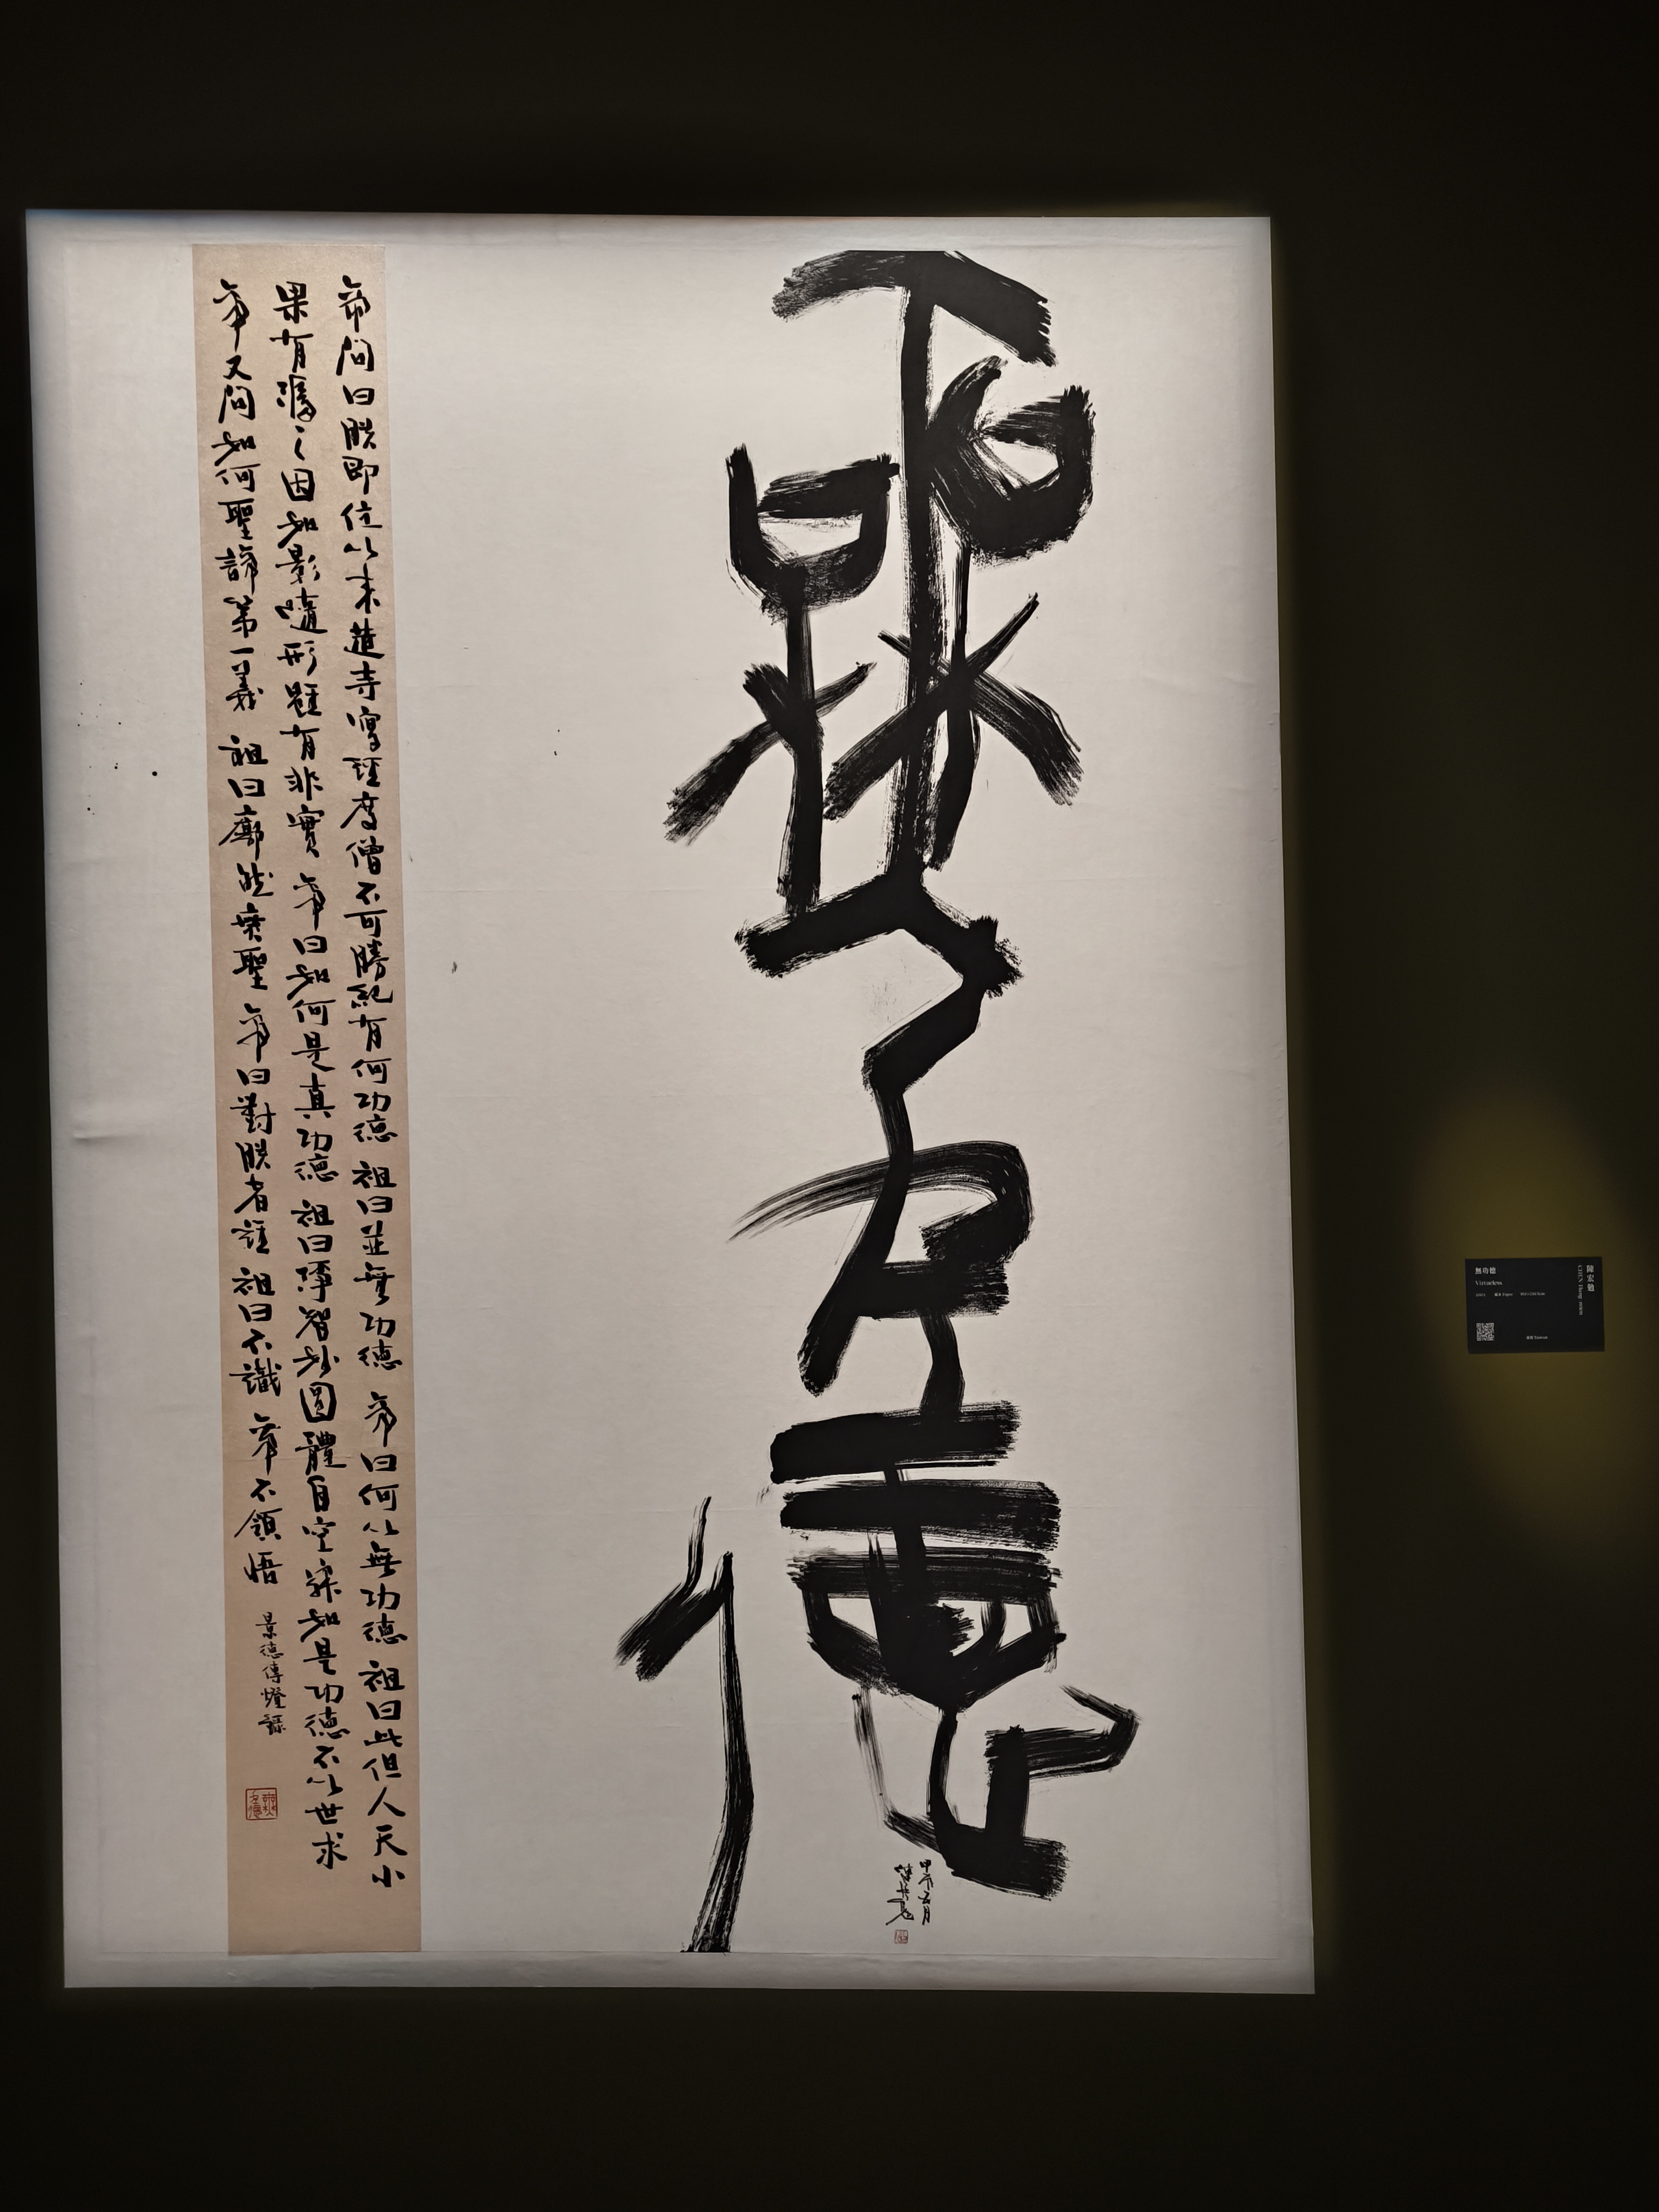 無功德
帝問曰朕即位以來造寺寫經度僧不可勝紀有何功德 祖曰並無功德 帝曰何以無功德 祖曰此但人天小
果有漏之因如影隨形雖有非實 帝曰如何是真功德 祖曰淨智妙圓體自空寂如是功德不以世求
帝又問如何聖諦第一義 祖曰廓然無聖 帝曰對朕者誰 祖曰不識 帝不領悟
景德傳燈錄
甲辰五月
陳宏勉
CHEN Hong-mien
無功德
Virtueless
臺灣 Taiwan